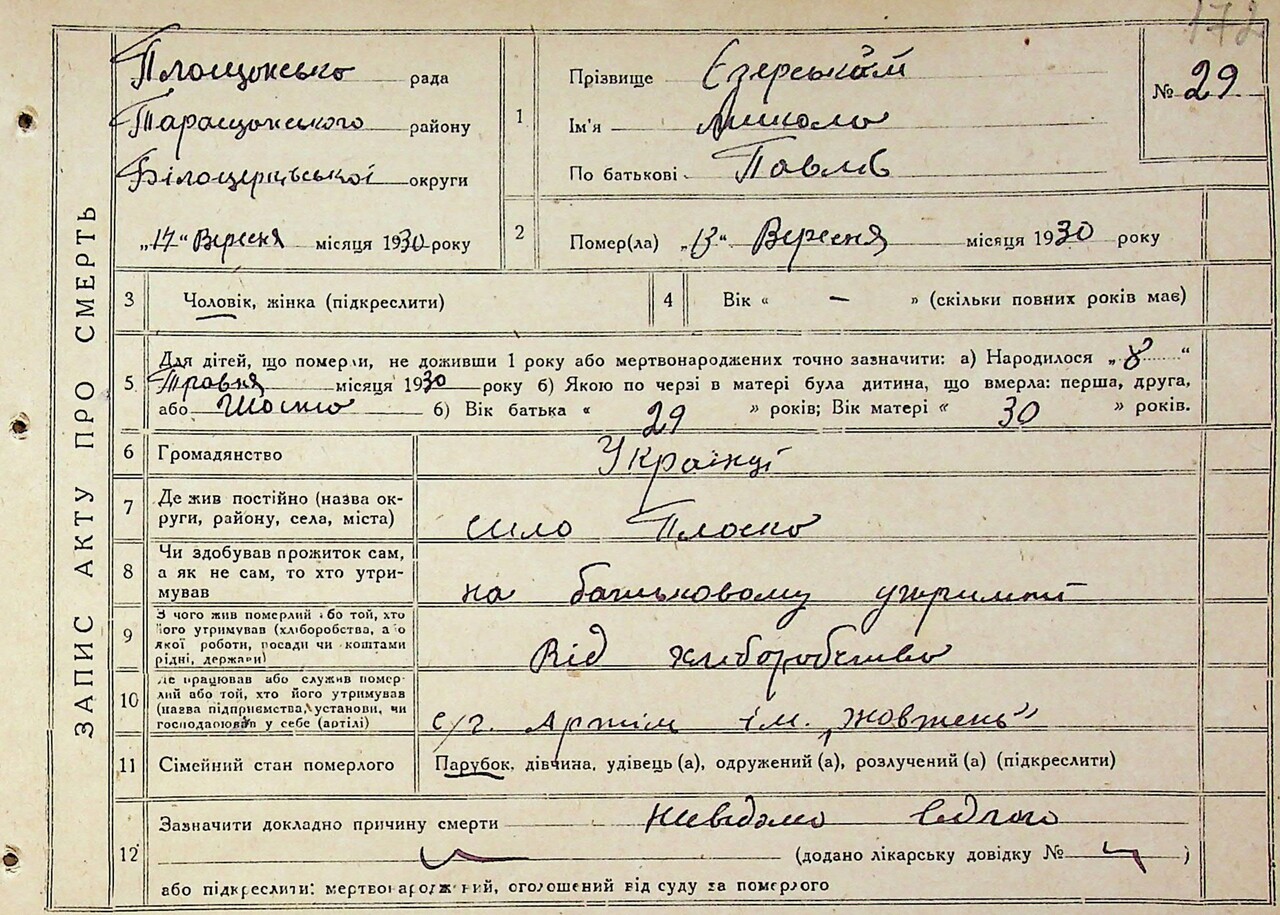 172
ЗАПИС АКТУ ПРО СМЕРТЬ
Площонсько рада
Таращонського району
Білоцерківської округи
„17“ Вересня місяця 1930 року
1
Прізвище Єзерський
Ім'я Микола
По батькові Павлів
№ 29
2
Помер(ла) „13“ Вересня місяця 1930 року
3 Чоловік, жінка (підкреслити)
4 Вік « — » (скільки повних років має)
5. Для дітей, що померли, не доживши 1 року або мертвонароджених точно зазначити: а) Народилося „8“
Травня місяця 1930 року б) Якою по черзі в матері була дитина, що вмерла: перша, друга,
або Шосто б) Вік батька « 29 » років; Вік матері « 30 » років.
6 Громадянство Українці
7 Де жив постійно (назва ок-
руги, району, села, міста) село Плоско
8 Чи здобував прожиток сам,
а як не сам, то хто утри-
мував на батьковому утримті
9 З чого жив померлий або той, хто
його утримував (хліборобства, або
якої роботи, посади чи коштами
рідні, держави) Від хліборобство
10 Де працював або служив помер-
лий або той, хто його утримував
(назва підприємства, установи, чи
господарював у себе (артілі) с/г. Артіл ім. „Жовтень”
11 Сімейний стан померлого Парубок, дівчина, удівець (а), одружений (а), розлучений (а) (підкреслити)
12 Зазначити докладно причину смерти Невідомо
(додано лікарську довідку № )
або підкреслити: мертвонароджений, оголошений від суду за померлого